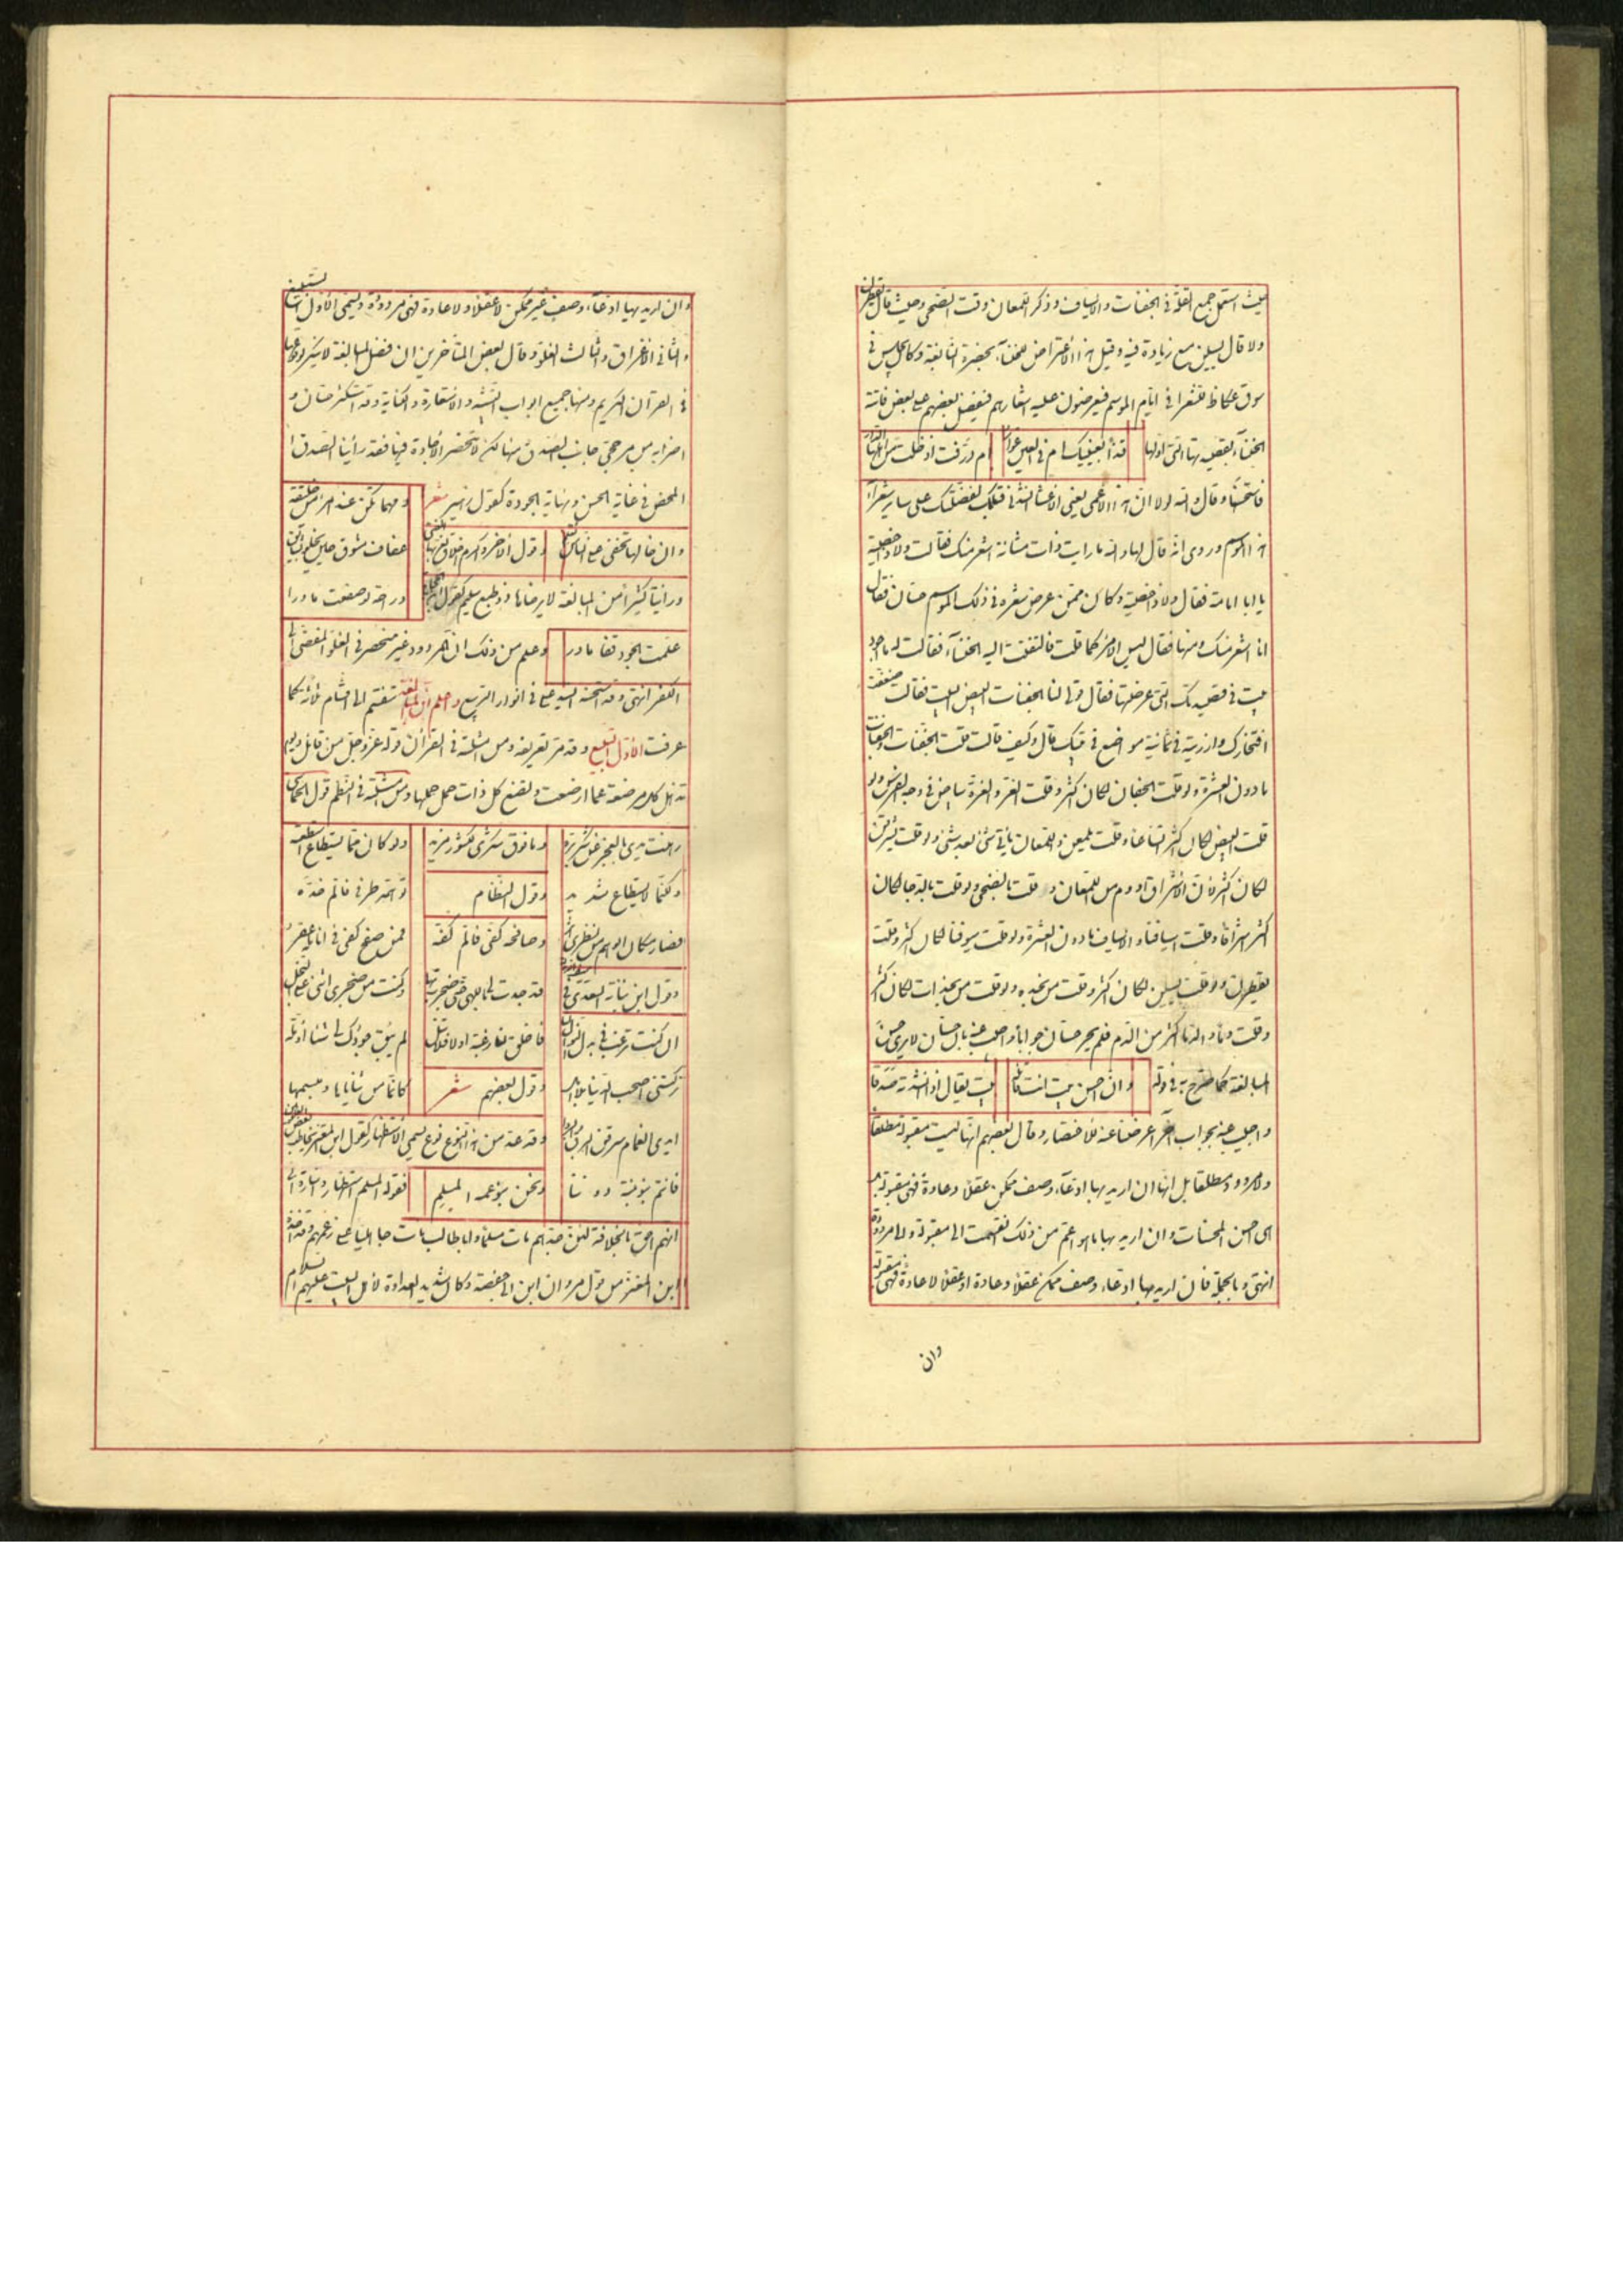 حيث استعمل جمع القلة في الجفنات والاسياف وذكر اللمعان وقت الضحى وحيث قال يقطرن
ولا قال يسلن مع زيادة فيه وقيل هذا الاعتراض للخنساء بحضرة النابغة وكان يجلس في
سوق عكاظ للشعراء في ايام الموسم فيعرضون عليه اشعارهم فيفضل بعضهم على بعض فاتته
الخنساء بقصيدتها التي اولها قذا بعينيك ام في العين عوار ام ذرفت اذ خلت من اهلها الدار
فاستحسنها وقال والله لولا ان هذا الاعمى يعني الاعشا انشدني قبلك لفضلتك على ساير شعراء
هذا الموسم وروى انه قال لها والله ما رايت ذات مثانة اشعر منك فقالت ولا ذا خصية
يا ابا امامة فقال ولا ذا خصية وكان ممن عرض شعره في ذلك الموسم حسان فقال
انا اشعر منك ومنها فقال ليس الامر كما قلت فالتفتت اليه الخنساء فقالت له ما اجود
بيت في قصيدتك التي عرضتها فقال قولي لنا الجفنات البيض البيت فقالت ضعفت
افتخارك وانزرته في ثمانية مواضع في بيتك قال وكيف قالت قلت الجفنات والجفنات
ما دون العشرة ولو قلت الجفان لكان اكثر وقلت الغر والغرة بياض في وجه الفرس ولو
قلت البيض لكان اكثر اتساعا وقلت يلمعن واللمعان ياتي شئ بعد شئ ولو قلت يشرقن
لكان اكثر لان الاشراق ادوم من اللمعان وقلت بالضحى ولو قلت بالدجا لكان
اكثر اشراقا وقلت اسيافنا والاسياف ما دون العشرة ولو قلت سيوفنا لكان اكثر وقلت
يقطرن ولو قلت يسلن لكان اكثر وقلت من نجده ولو قلت من نجدات لكان اكثر
وقلت دما والدما اكثر من الدم فلم يحر حسان جوابا واجيب عنه بان حسان لا يرى حسن
المبالغة كما صرح به في قوله وان احسن بيت انت قائله بيت يقال اذا انشدته صدقا
واجيب عنه بجواب آخر اعرضنا عنه للاختصار وقال بعضهم انها ليست مقبولة مطلقا
ولا مردودة مطلقا بل انها ان اريد بها ادعاء وصف ممكن عقلا وعادة فهي مقبولة
من احسن المحسنات وان اريد بها ما هو اعم من ذلك انقسمت الى مقبولة والى مردودة
انتهى وبالجملة فان اريد بها ادعاء وصف ممكن عقلا وعادة او عقلا لا عادة فهي مقبولة
وان
وان اريد بها ادعاء وصف غير ممكن لا عقلا ولا عادة فهي مردودة ويسمى الاول التبليغ
والثاني الاغراق والثالث الغلو وقال بعض المتاخرين ان فضل المبالغة لا ينكر لوقوعها
في القرآن الكريم ومنها جميع ابواب التشبيه والاستعارة والكناية وقد استكثر حسان و
اضرابه من مرجحي جانب الصدق منها لكن لا تنحصر الاجادة فيها فقد راينا الصدق ا
المحض في غاية الحسن ونهاية الجودة كقول زهير شعر ومهما تكن عند امرئ من خليقة
وان خالها تخفى على الناس تعلم وقول الاخر واكرم اخلاق الفتى
ورأيت كثيرا من المبالغة لا يرضاها ذو طبع سليم كقول ابن
علمت الجود قفا ما ورا وعلم من ذلك ان المردود غير منحصر في الغلو المفضي الى
الكفر انتهى وقد استحسنه السيد علي في انوار الربيع واعلم ان المبالغة تنقسم الى اقسام ثلاثة كما
عرفت الاول التبليغ وقد مر تعريفه ومن امثلته في القرآن قوله عز وجل من قائل يوم
تذهل كل مرضعة عما ارضعت وتضع كل ذات حمل حملها ومن امثلته في النظم قول الحماسي
رهنت يدي بالعجز عن شكر بره وما فوق شكري للشكور مزيد ولو كان مما يستطاع استطعته
ولكنما لا يستطاع شديد وقول النظام توهمه طرفي فآلم خده
فصار مكان الوهم من نظري اثر وصافحه كفي فآلم كفه فمن صفح كفي في انامله عقر
وقول ابن نباتة السعدي في سيف الدولة قد جدت لي باللهى حتى ضجرت بها وكدت من ضجري اثني على البخل
ان كنت ترغب في بذل النوال لنا فاخلق لنا رغبة اولا فلا تنل لم يبق جودك لي شيئا اؤمله
تركتني اصحب الدنيا بلا امل وقول بعضهم شعر كانما من ثناياها ومبسمها
ايدي الغمام سرقن البرق والبردا وقد عد من هذا النوع نوع يسمى الاستظهار كقول ابن المعتز يخاطب بعض
فانتم بنو بنته دوننا ونحن بنو عمه المسلم فقوله المسلم استظهار واشارة الى
انهم احق بالخلافة لكون جدهم مات مسلما وابا طالب مات جاهليا على زعمهم وقد اخذه
ابن المعتز من قول مروان ابن ابي حفصة وكان شديد العداوة لاهل البيت عليهم السلام